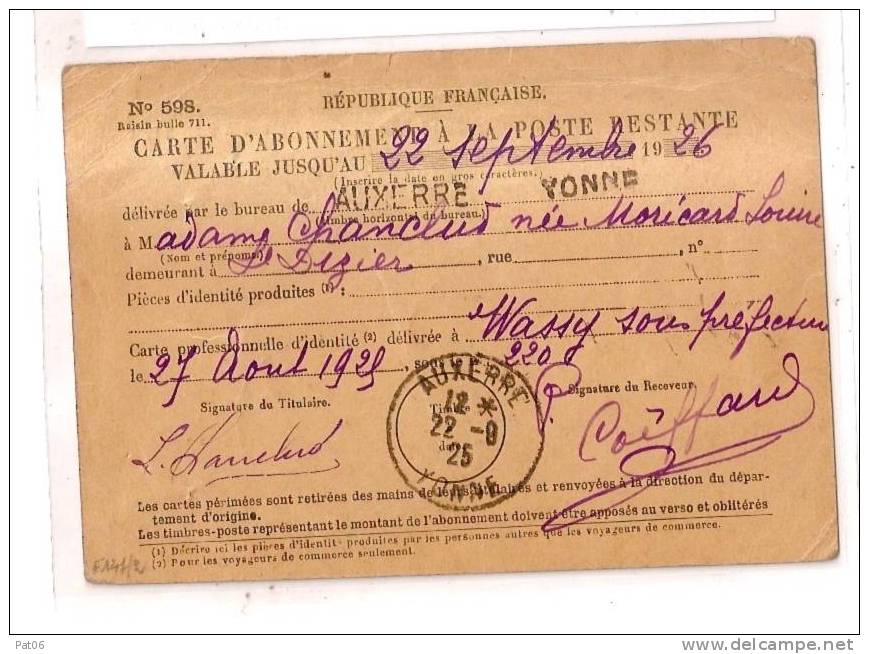 No 598.
Raisin bulle 711.
RÉPUBLIQUE FRANÇAISE.
CARTE D'ABONNEMENT À LA POSTE RESTANTE
VALABLE JUSQU'AU 22 Septembre 1926
(Inscrire la date en gros caractères.)
délivrée par le bureau de AUXERRE YONNE
(Timbre horizontal du bureau.)
à Madame Chanclud née Moricard Louise
(Nom et prénoms)
demeurant à St Dizier, rue, n°
Pièces d'identité produites (1) :
Carte professionnelle d'identité (2) délivrée à Wassy sous préfecture
le 27 Aout 1925, sous le n° 220
Signature du Titulaire.
Timbre
date
Signature du Receveur,
AUXERRE
12 *
22 - 9
25
YONNE
P. Coëffard
L. Chanclud
Les cartes périmées sont retirées des mains de leurs titulaires et renvoyées à la direction du dépar-
tement d'origine.
Les timbres-poste représentant le montant de l'abonnement doivent être apposés au verso et oblitérés
(1) Décrire ici les pièces d'identité produites par les personnes autres que les voyageurs de commerce.
(2) Pour les voyageurs de commerce seulement.
Pat06
www.delcampe.net